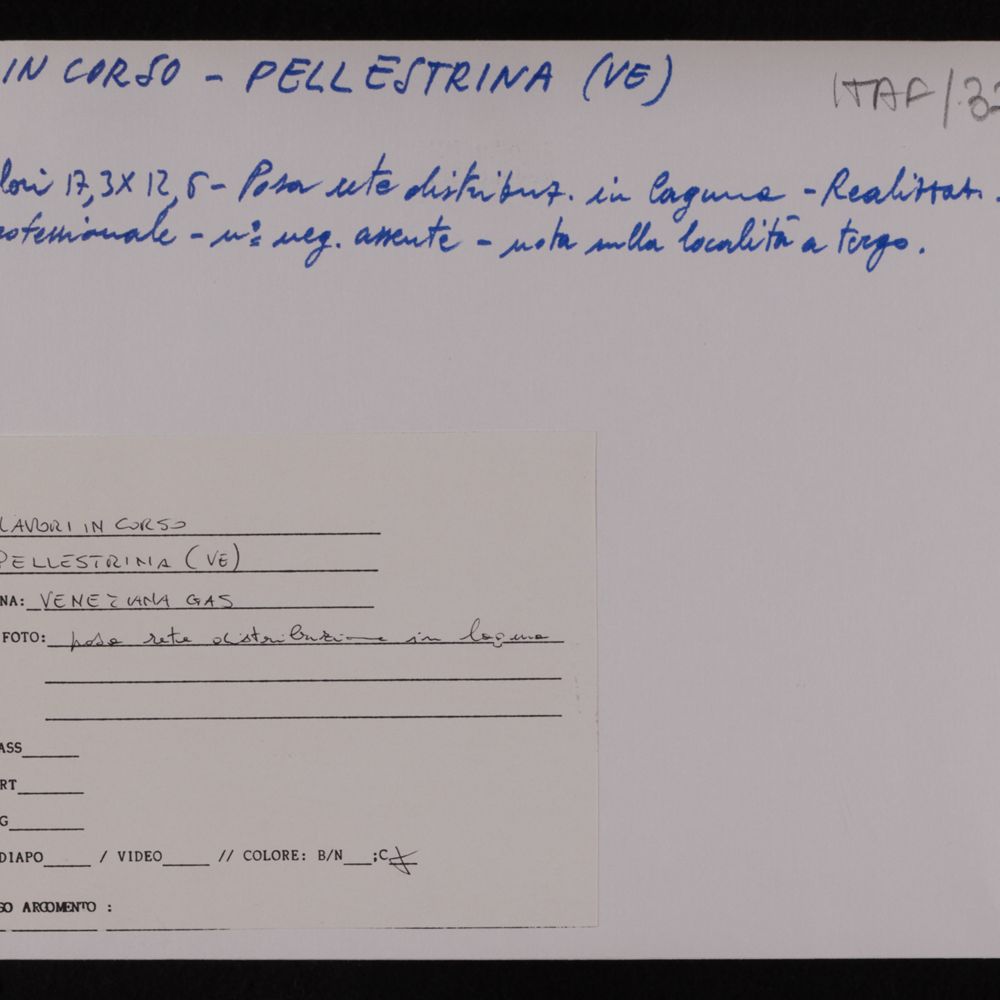 IN CORSO - PELLESTRINA (VE)
ITAF/32
lori 17,3X12,5 - Posa rete distribuz. in laguna - Realizzaz.
rofessionale - n° neg. assente - nota sulla località a tergo.
LAVORI IN CORSO
PELLESTRINA (VE)
NA: VENEZIANA GAS
FOTO: posa rete distribuzione in laguna
ASS
RT
G
DIAPO / VIDEO // COLORE: B/N ;C X
SO ARGOMENTO :